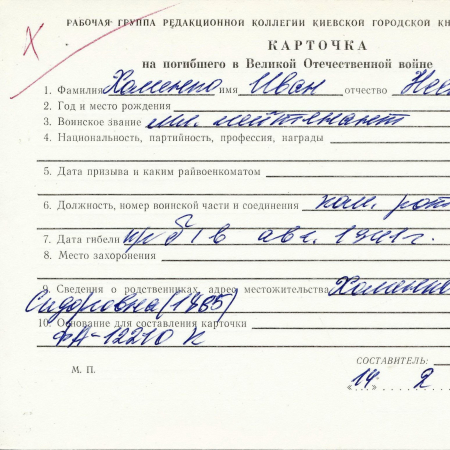 РАБОЧАЯ ГРУППА РЕДАКЦИОННОЙ КОЛЛЕГИИ КИЕВСКОЙ ГОРОДСКОЙ КН
КАРТОЧКА
на погибшего в Великой Отечественной войне
1. Фамилия Хоменко имя Иван отчество
2. Год и место рождения
3. Воинское звание мл. лейтенант
4. Национальность, партийность, профессия, награды
5. Дата призыва и каким райвоенкоматом
6. Должность, номер воинской части и соединения ком. рот
7. Дата гибели пр б/в авг. 1941 г.
8. Место захоронения
9. Сведения о родственниках, адрес местожительства Хоменко
Сидоровна (1885)
10. Основание для составления карточки
фд-12210 К
СОСТАВИТЕЛЬ:
М. П.
"14" 2